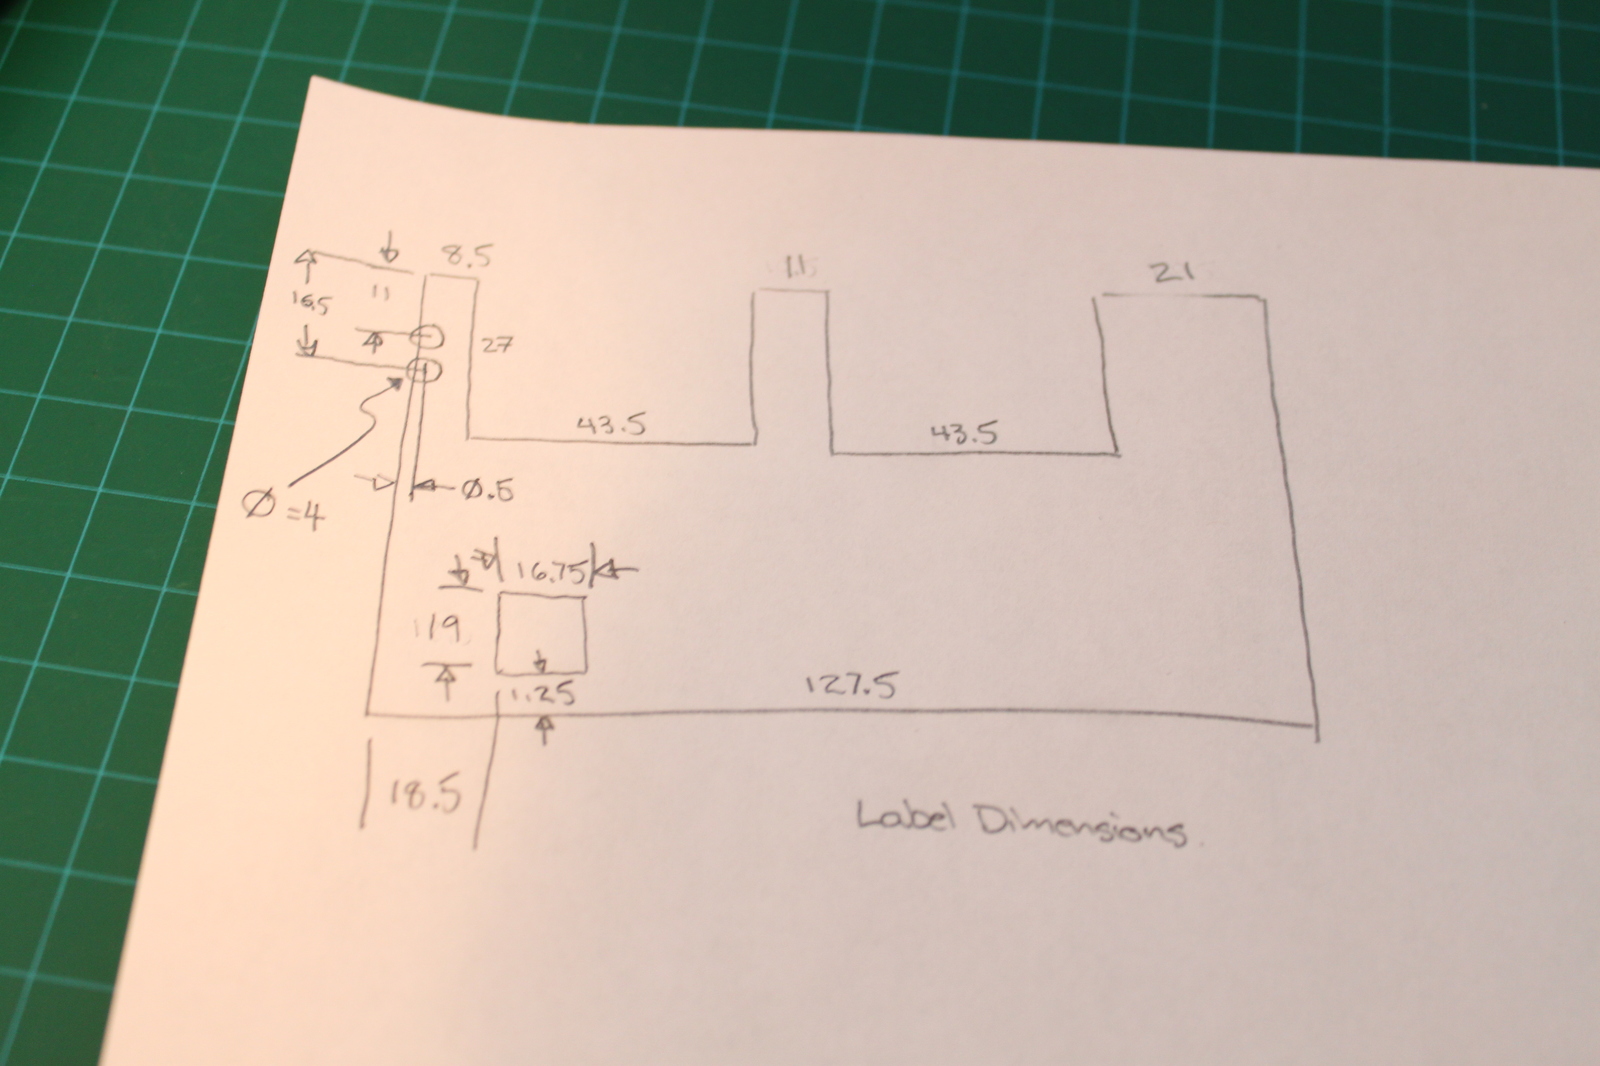 8.5
11
21
11
16.5
27
43.5
43.5
Ø.5
Ø=4
16.75
19
1.25
127.5
18.5
Label Dimensions.